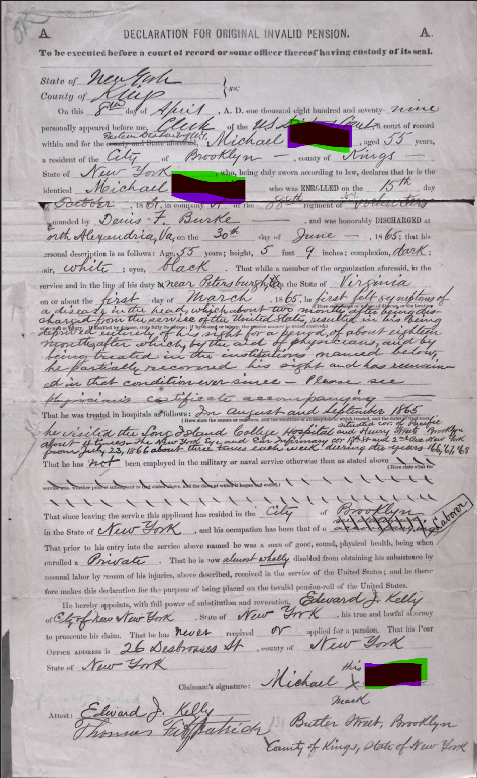 A. DECLARATION FOR ORIGINAL INVALID PENSION. A.
To be executed before a court of record or some officer thereof having custody of its seal.
State of New York
County of Kings } ss:
On this 8th day of April, A. D. one thousand eight hundred and seventy-nine
personally appeared before me, Clerk of the US Court a court of record
within and for the county and State aforesaid, Michael , aged 55 years,
a resident of the City of Brooklyn, county of Kings
State of New York, who, being duly sworn according to law, declares that he is the
identical Michael who was ENROLLED on the 15th day
of October, 1861, in company of the 88th regiment of NY Volunteers
commanded by Denis F. Burke, and was honorably DISCHARGED at
North Alexandria, Va, on the 30th day of June, 1865; that his
personal description is as follows: Age, 55 years; height, 5 feet 9 inches; complexion, dark;
hair, white; eyes, black. That while a member of the organization aforesaid, in the
service and in the line of his duty at near Petersburgh Va in the State of Virginia
on or about the first day of March, 1865, he first felt symptoms of
a disease in the head, which about two months after being dis-
charged from the service of the United States, resulted in his being
deprived entirely of his sight for a period of about eighteen
months, after which, by the aid of physicians, and by
being treated in the institutions named below,
he partially recovered his sight and has remain-
ed in that condition ever since – Please see
Physicians certificate accompanying
That he was treated in hospitals as follows: In August and September 1865
he visited the Long Island College Hospital situated cor. of Pacific and Henry Streets Brooklyn
about 4 times. The New York Eye and Ear Infirmary cor 13th St and 2nd Ave New York
from July 23, 1866 about three times each week during the years '66, '67, '68
That he has not been employed in the military or naval service otherwise than as stated above
(Here state what the
service was, whether prior or subsequent to that stated above, and the dates at which it began and ended.)
That since leaving the service this applicant has resided in the City of Brooklyn
in the State of New York, and his occupation has been that of a Laborer
That prior to his entry into the service above named he was a man of good, sound, physical health, being when
enrolled a Private. That he is now almost wholly disabled from obtaining his subsistence by
manual labor by reason of his injuries, above described, received in the service of the United States; and he there-
fore makes this declaration for the purpose of being placed on the invalid pension-roll of the United States.
He hereby appoints, with full power of substitution and revocation, Edward J. Kelly
of City of New New York, State of New York, his true and lawful attorney
to prosecute his claim. That he has never received or applied for a pension. That his POST
OFFICE ADDRESS is 26 Desbrosses St, county of New York
State of New York
Claimant's signature: Michael his X mark
Attest: Edward J. Kelly
Thomas Fitzpatrick
Butler Street, Brooklyn
County of Kings, State of New York